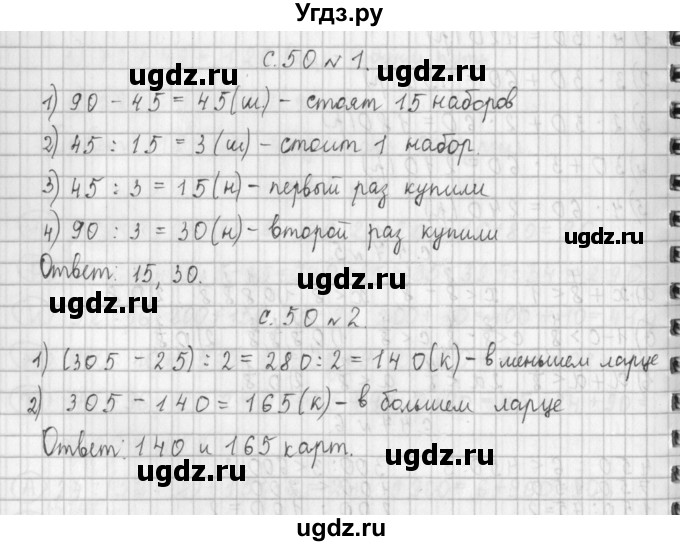 Угдз.ру
с. 50 № 1.
ugdz.ru ugdz.ru
1) 90 - 45 = 45 (ш.) - стоят 15 наборов
2) 45 : 15 = 3 (ш) - стоит 1 набор.
ugdz.ru ugdz.ru
3) 45 : 3 = 15 (н) - первый раз купили
4) 90 : 3 = 30 (н) - второй раз купили
ugdz.ru ugdz.ru
Ответ: 15, 30.
ugdz.ru ugdz.ru
с. 50 № 2.
1) (305 - 25) : 2 = 280 : 2 = 140 (к) - в меньшем ларце
ugdz.ru ugdz.ru
2) 305 - 140 = 165 (к) - в большем ларце
Ответ: 140 и 165 карт.
ugdz.ru ugdz.ru
ugdz.ru